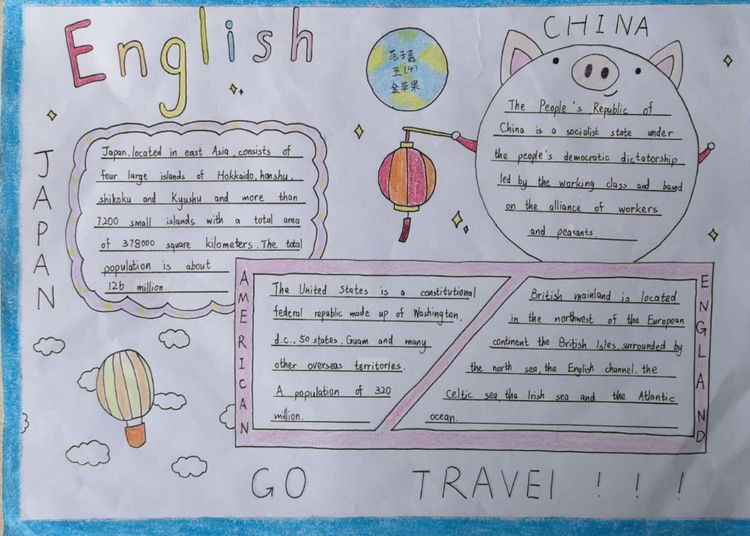 English
范子嘉
五(4)
金苹果
CHINA
The People's Republic of
China is a socialist state under
the people's democratic dictatorship
led by the working class and based
on the alliance of workers
and peasants
JAPAN
Japan, located in east Asia, consists of
four large islands of Hokkaido, honshu,
shikoku and Kyushu and more than
7200 small islands with a total area
of 378000 square kilometers. The total
population is about
126 million.
AMERICAN
The United States is a constitutional
federal republic made up of Washington,
d.c., 50 states, Guam and many
other overseas territories.
A population of 320
million.
ENGLAND
British mainland is located
in the northwest of the European
continent the British Isles, surrounded by
the north sea, the English channel, the
Celtic sea, the Irish sea and the Atlantic
ocean.
GO TRAVEl ! ! !